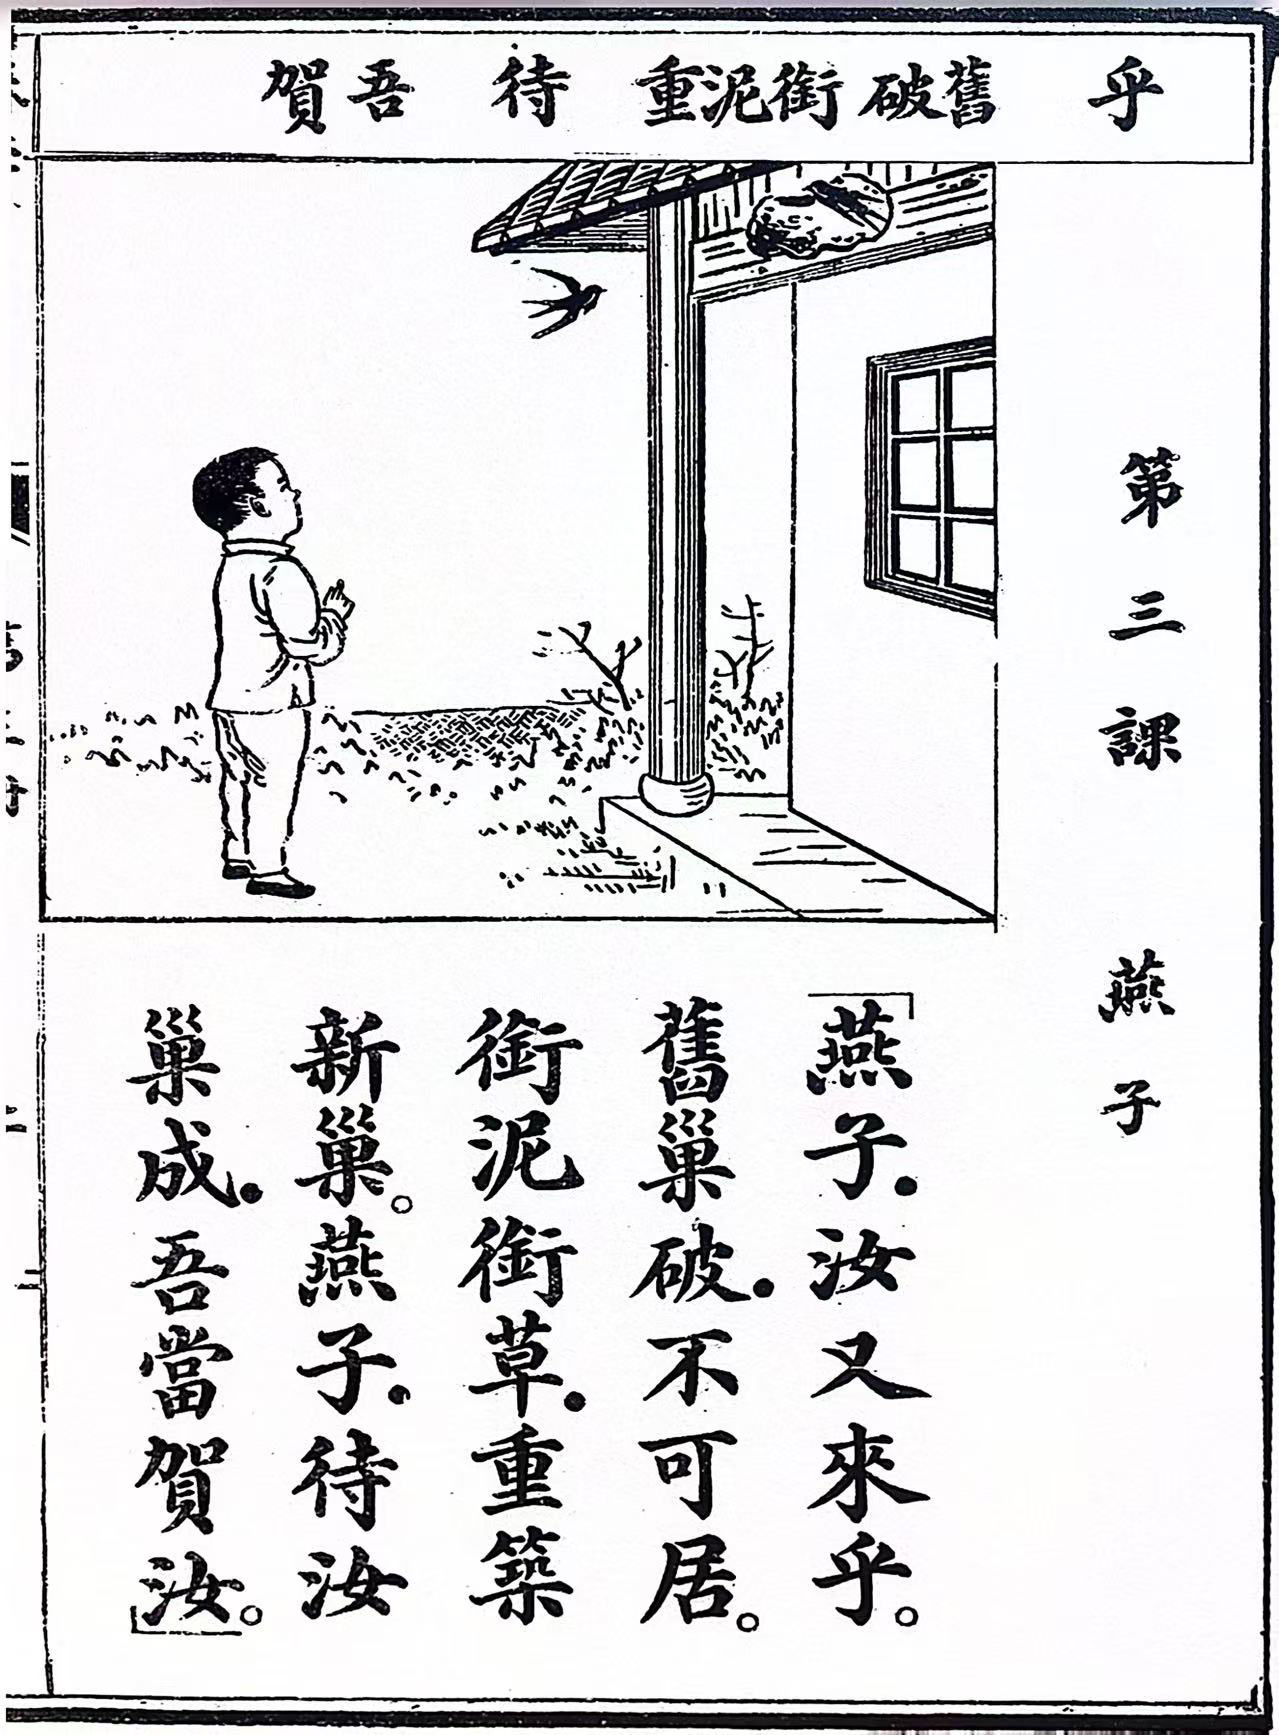 乎　舊破銜泥重　待　吾賀
第三課　燕子
「燕子．汝又來乎。
舊巢破．不可居。
銜泥銜草．重築
新巢。燕子．待汝
巢成．吾當賀汝。」